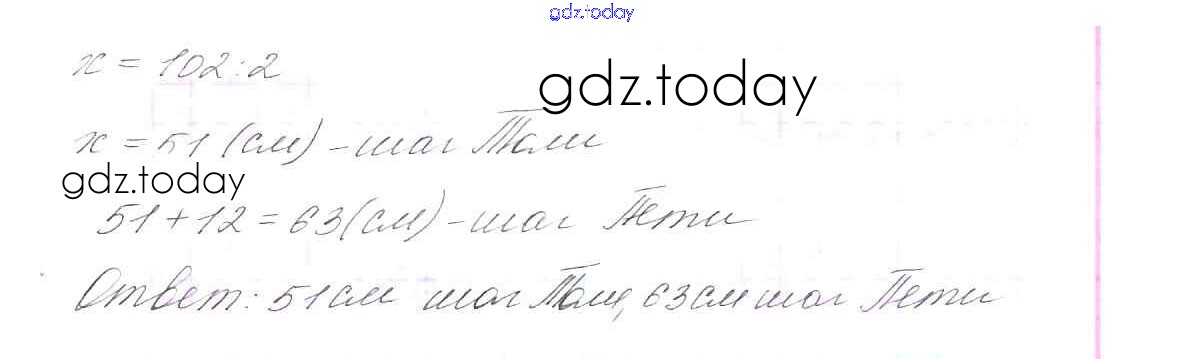 gdz.today
x = 102:2
gdz.today
x = 51 (см) - шаг Толи
gdz.today
51 + 12 = 63 (см) - шаг Пети
Ответ: 51 см шаг Толи, 63 см шаг Пети